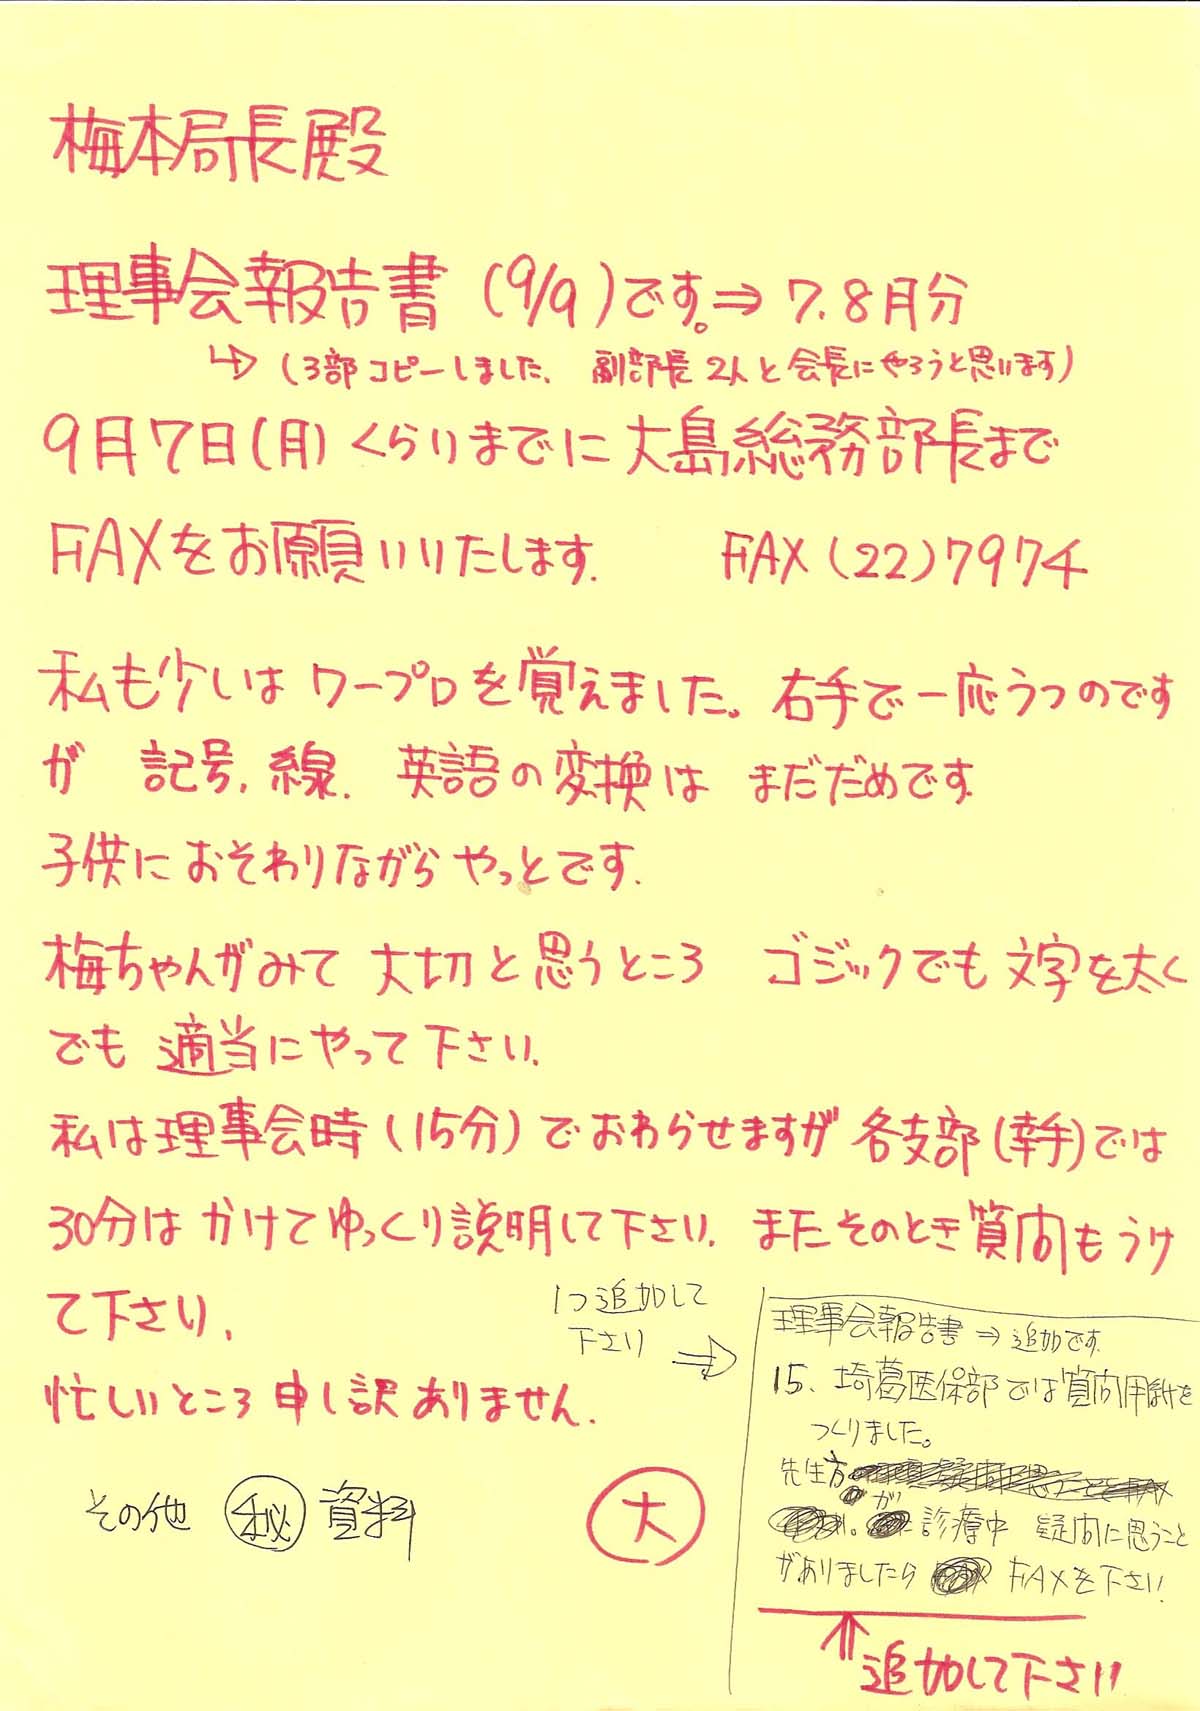 梅本局長殿
理事会報告書 (9/9)です。⇒ 7、8月分
↳ (3部コピーしました、副部長2人と会長にやろうと思います)
9月7日(月)くらいまでに大島総務部長まで
FAXをお願いいたします。 FAX (22)7974
私も少しはワープロを覚えました。右手で一応うつのです
が 記号、線、英語の変換は まだだめです
子供におそわりながらやっとです。
梅ちゃんがみて大切と思うところ ゴジックでも文字を太く
でも適当にやって下さい。
私は理事会時(15分)でおわらせますが各支部(幸手)では
30分は かけてゆっくり説明して下さい。またそのとき質問もうけ
て下さい。
忙しいところ申し訳ありません。
1つ追加して
下さい ⇒
理事会報告書 ⇒ 追加です。
15、埼葛医保部では質問用紙を
つくりました。
先生方
が
診療中 疑問に思うこと
がありましたら FAXを下さい
⇑追加して下さい
その他 ㊙ 資料
大